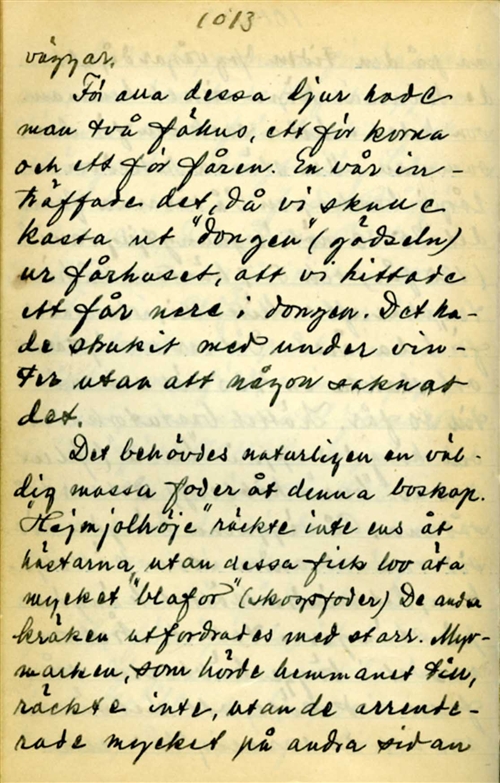 1013
väggar.
För alla dessa djur hade
man två fähus, ett för korna
och ett för fåren. En vår in-
träffade det, då vi skulle
kasta ut "dongen" (gödseln)
ur fårhuset, att vi hittade
ett får nere i dongen. Det ha-
de strukit med under vin-
ter utan att någon saknat
det.
Det behövdes naturligen en väl-
dig massa foder åt denna boskap.
"Hejmjolhöje" räckte inte ens åt
hästarna, utan dessa fick lov äta
mycket "blafor" (skogsfoder) De andra
kräken utfordrades med starr. Myr-
marken, som hörde hemmanet till,
räckte inte, utan de arrende-
rade mycket på andra sidan